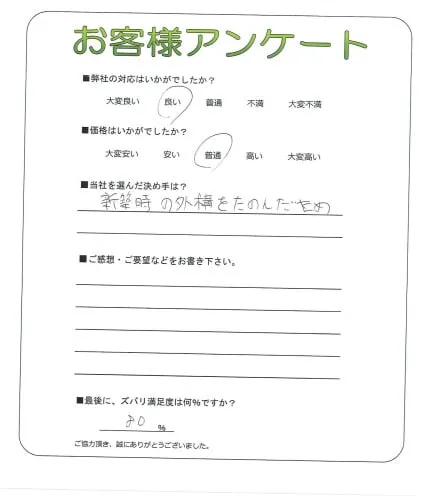 お客様アンケート
■弊社の対応はいかがでしたか？
大変良い 良い 普通 不満 大変不満
■価格はいかがでしたか？
大変安い 安い 普通 高い 大変高い
■当社を選んだ決め手は？
新築時の外構をたのんだため
■ご感想・ご要望などをお書き下さい。
■最後に、ズバリ満足度は何%ですか？
80 %
ご協力頂き、誠にありがとうございました。